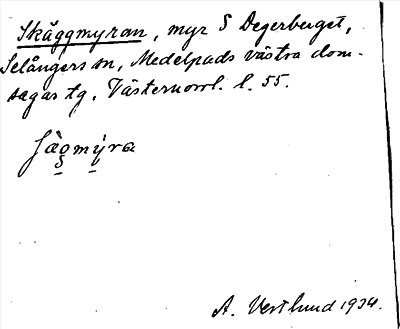 Skäggmyran, myr S Degerberget,
Selångers sn, Medelpads västra dom-
sagas tg, Västernorrl. l. 55.
A. Vestlund 1934.